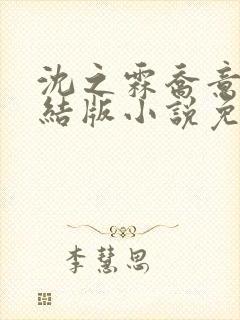 沈之霖喬意
結版小說免
李慧思